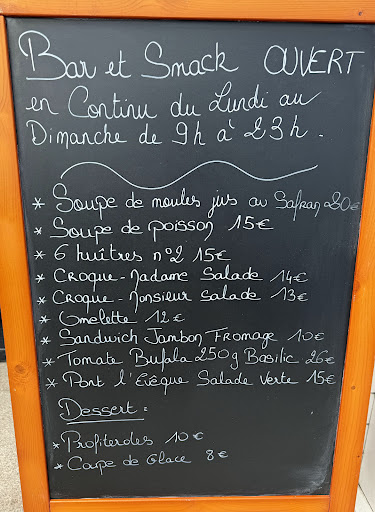 Bar et Snack OUVERT
en Continu du Lundi au
Dimanche de 9h à 23h.
* Soupe de moules jus au Safran 20€
* Soupe de poisson 15€
* 6 huîtres n°2 15€
* Croque-Madame Salade 14€
* Croque-Monsieur Salade 13€
* Omelette 12€
* Sandwich Jambon Fromage 10€
* Tomate Bufala 250g Basilic 26€
* Pont l'Evêque Salade verte 15€
Dessert :
* Profiteroles 10€
* Coupe de Glace 8€